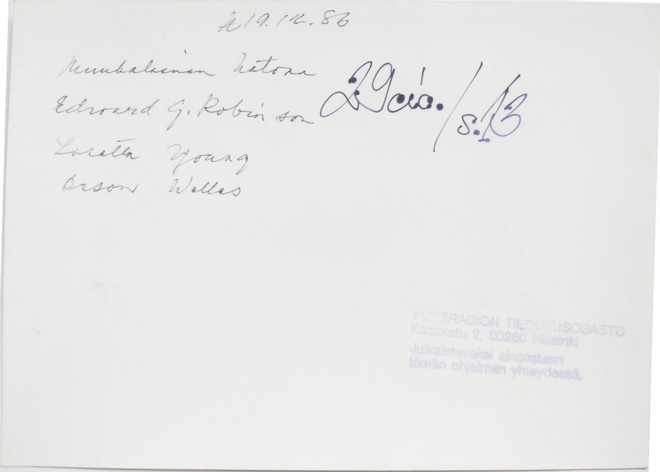 19.12.86
Muukalainen
Edward G. Robinson
29 cic. / s. 13
Loretta Young
Orson Welles
YLEISRADION TIEDOTUSOSASTO
Kesäkatu 2, 00260 Helsinki
Julkaistavaksi ainoastaan
tämän ohjelman yhteydessä.